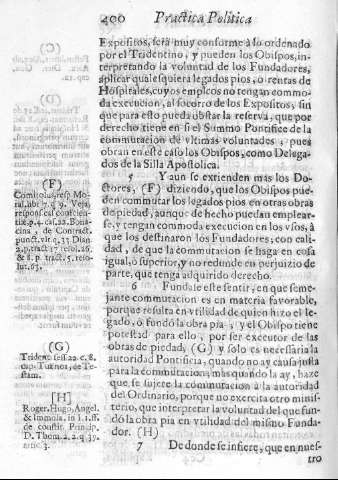 400 Practica Politica
Expositos, será muy conforme à lo ordenado
por el Tridentino, y pueden los Obispos, in-
terpretando la voluntad de los Fundadores,
aplicar qualesquiera legados pios, o rentas de
Hospitales, cuyos empleos no tengan commo-
da execucion, al socorro de los Expositos, sin
que para esto pueda obstar la reserva, que por
derecho tiene en sì el Summo Pontifice de la
commutacion de vltimas voluntades, pues
obran en este caso los Obispos, como Delega-
dos de la Silla Apostolica.
5 Y aun se extienden mas los Do-
ctores, (F) diziendo, que los Obispos pue-
den commutar los legados pios en otras obras
de piedad, aunque de hecho puedan emplear-
se, y tengan commoda execucion en los vsos, à
que los destinaron los Fundadores; con cali-
dad, de que la commutacion se haga en cosa
igual, ò superior, y no redunde en perjuizio de
parte, que tenga adquirido derecho.
6 Fundase este sentir, en que seme-
jante commutacion es en materia favorable,
porque resulta en vtilidad de quien hizo el le-
gado, ò fundò la obra pia, y el Obispo tiene
potestad para ello, por ser executor de las
obras de piedad, (G) y solo es necessaria la
autoridad Pontificia, quando no ay causa justa
para la commutacion; mas quando la ay, haze
que se sujete la commutacion à la autoridad
del Ordinario, porque no exercita otro minis-
terio, que interpretar la voluntad del que fun-
dò la obra pia en vtilidad del mismo Funda-
dor. (H)
7 De donde se infiere, que en nues-
tro
(F)
Comitolus, resp. Mo-
ral. lib. 7. q. 9. Vega,
respons. cal. conscien-
tiæ, p. 4. cas. 22. Bona-
cina, de Contract.
(G)
Trident. sess. 22. c. 8.
de Te-
stam.
[H]
Roger. Hugo, Angel.
& Immola. in l. 1. ff.
de constit. Princip.
D. Thom. 2. 2. q. 39.
artic. 3.